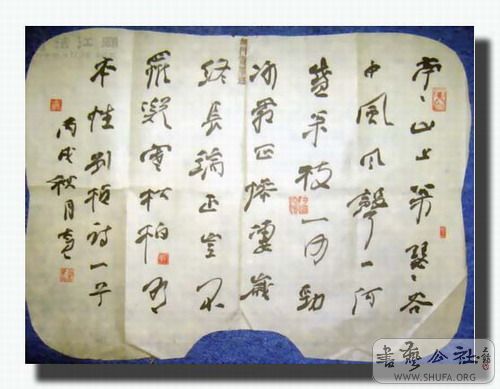 亭山上松瑟瑟谷
中風風聲一何
盛松枝一何勁
冰霜正慘凄歲
終長端正豈不
羅凝寒松柏有
本性劉楨詩一首
丙戌秋月
書藝公社
WWW.SHUFA.ORG